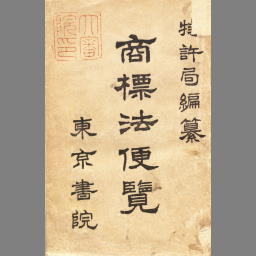 特許局編纂
商標法便覽
東京書院